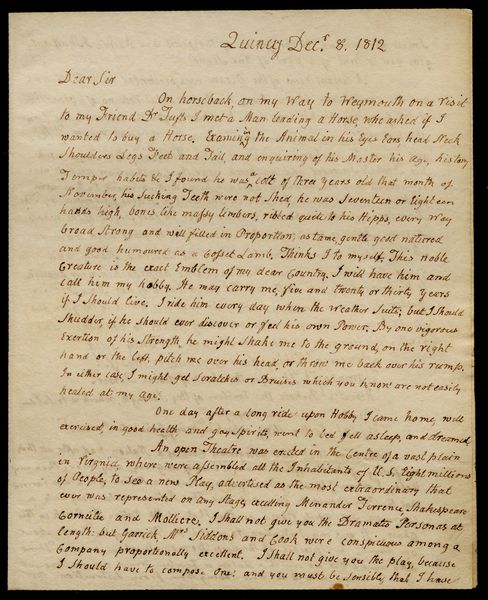 Quincy Decr. 8. 1812
Dear Sir
On horseback, on my Way to Weymouth on a Visit
to my Friend Dr Tufts I met a Man leading a Horse, who asked if I
wanted to buy a Horse. Examining the Animal in his Eyes Ears, head Neck
Shoulders Legs Feet and Tail, and enquiring of his Master his Age, history
Temper habits &c I found he was a Colt of three Years old that month of
November, his Sucking Teeth were not Shed, he was Seventeen or Eighteen
hands high, bones like massy timbers, ribbed quite to his Hipps, every Way
broad Strong and well filled in Proportion; as tame, gentle good natured
and good humoured as a Cosset Lamb. Thinks I to myself, This noble
Creature is the exact Emblem of my dear Country. I will have him and
call him my hobby. He may carry me, five and twenty or thirty Years
if I should live. I ride him every day when the weather Suits; but I should
Shudder, if he should ever discover or feel his own Power. By one vigorous
Exertion of his Strength, he might shake me to the ground, on the right
hand or the left, pitch me over his head, or throw me back over his rump.
In either case, I might get Scratches or Bruises which you know are not easily
healed at my Age.
One day after a long ride upon Hobby I came home, well
exercised, in good health and gay Spirits, went to bed fell asleep, and dreamed,
An open Theatre was erected in the Centre of a vast plain
in Virginia, where were assembled all the Inhabitants of U.S. Eight millions
of People, to See a new Play, advertised as the most extraordinary that
ever was represented on any Stage, excelling Menander Terrence, Shakespeare
Corneille and Molliere. I shall not give you the Dramatis Personas at
length: but Garrick, Mrs Siddons and Cook were conspicuous among a
Company proportionally excellent. I shall not give you the play, because
I should have to compose one: and you must be sensible, that I have